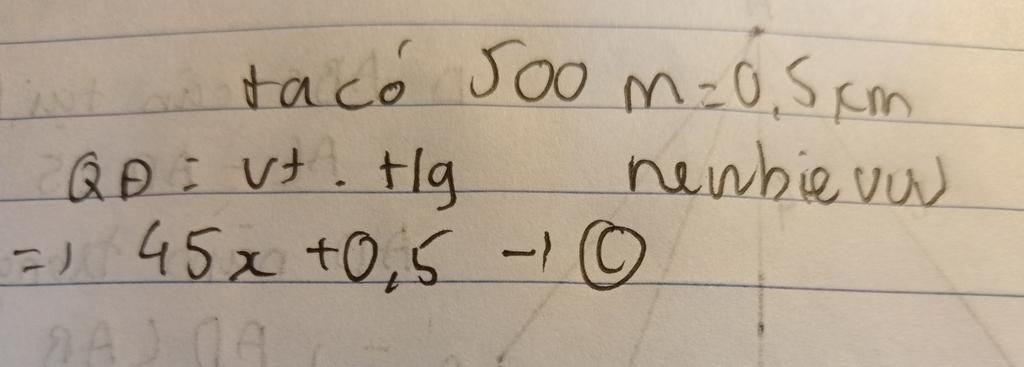 ta có 500 m = 0,5 km
QĐ = vt . tlg newbie vw
=) 45x + 0,5 -) Ⓒ